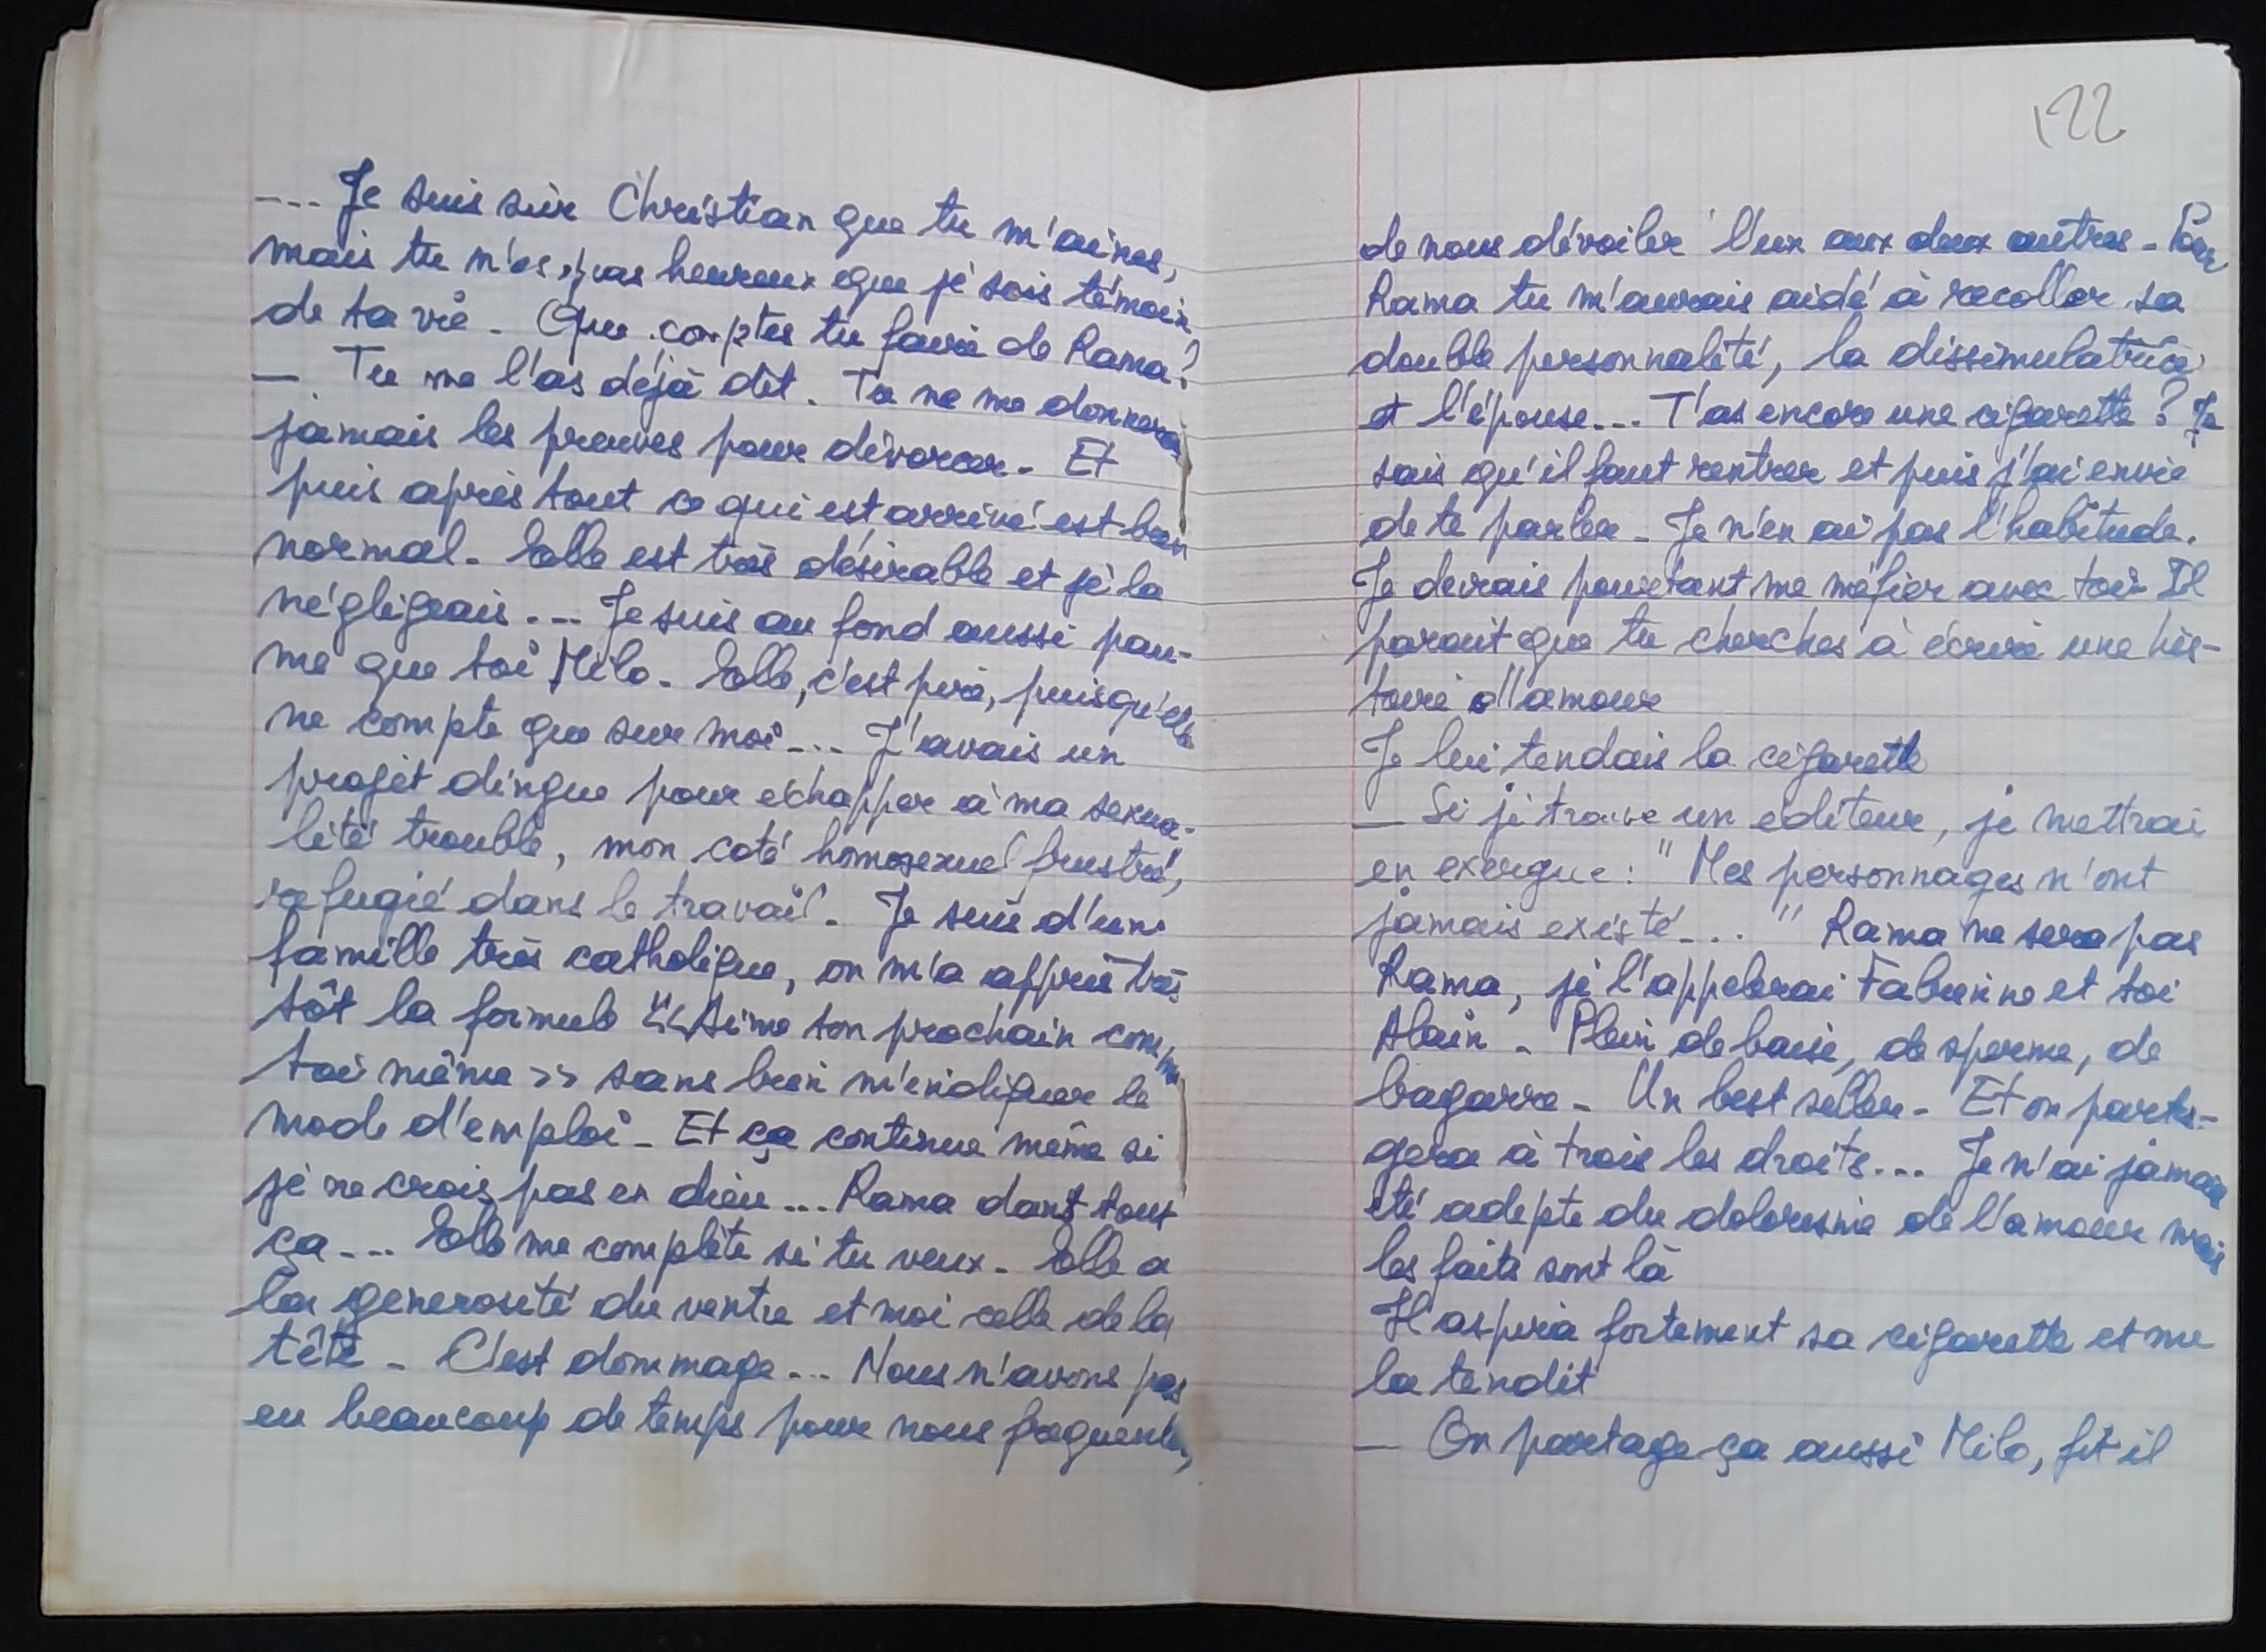 --- Je suis sûr Christian que tu m'aimes,
mais tu n'es pas heureux que je sois témoin
de ta vie - Que comptes tu faire de Rama?
— Tu me l'as déjà dit. Tu ne me donneras
jamais les preuves pour divorcer - Et
puis après tout ce qui est arrivé est bien
normal - Elle est très désirable et je la
négligeais --- Je suis au fond aussi pau-
mé que toi Milo - Elle, c'est pire, puisqu'elle
ne compte que sur moi --- J'avais un
projet dingue pour échapper à ma sexua-
lité trouble, mon coté homosexuel frustré,
réfugié dans le travail - Je suis d'une
famille très catholique, on m'a appris très
tôt la formule << Aime ton prochain comme
toi même >> sans bien m'endiguer le
mode d'emploi - Et ça continue même si
je ne crois pas en dieu ... Rama dans tout
ça --- Elle me complète si tu veux - Elle a
la generosité du ventre et moi celle de la
tête - C'est dommage --- Nous n'avons pas
eu beaucoup de temps pour nous fréquenter,
122
de nous dévoiler l'un aux deux autres - Pour
Rama tu m'aurais aidé à recoller sa
double personnalité, la dissimulatrice
et l'épouse --- T'as encore une cigarette ? Je
sais qu'il faut rentrer et puis j'ai envie
de te parler - Je n'en ai pas l'habitude.
Je devrais pourtant me méfier avec toi - Il
parait que tu cherches à écrire une his-
toire d'amour
Je lui tendais la cigarette
— Si je trouve un editeur, je mettrai
en exergue : "Mes personnages n'ont
jamais existé --- " Rama ne sera pas
Rama, je l'appelerai Fabienne et toi
Alain - Plein de baise, de sperme, de
bagarre - Un best seller - Et on parta-
gera à trois les droits --- Je n'ai jamais
été adepte du dolorisme de l'amour mais
les faits sont là
Il aspira fortement sa cigarette et me
la tendit
— On partage ça aussi Milo, fit il